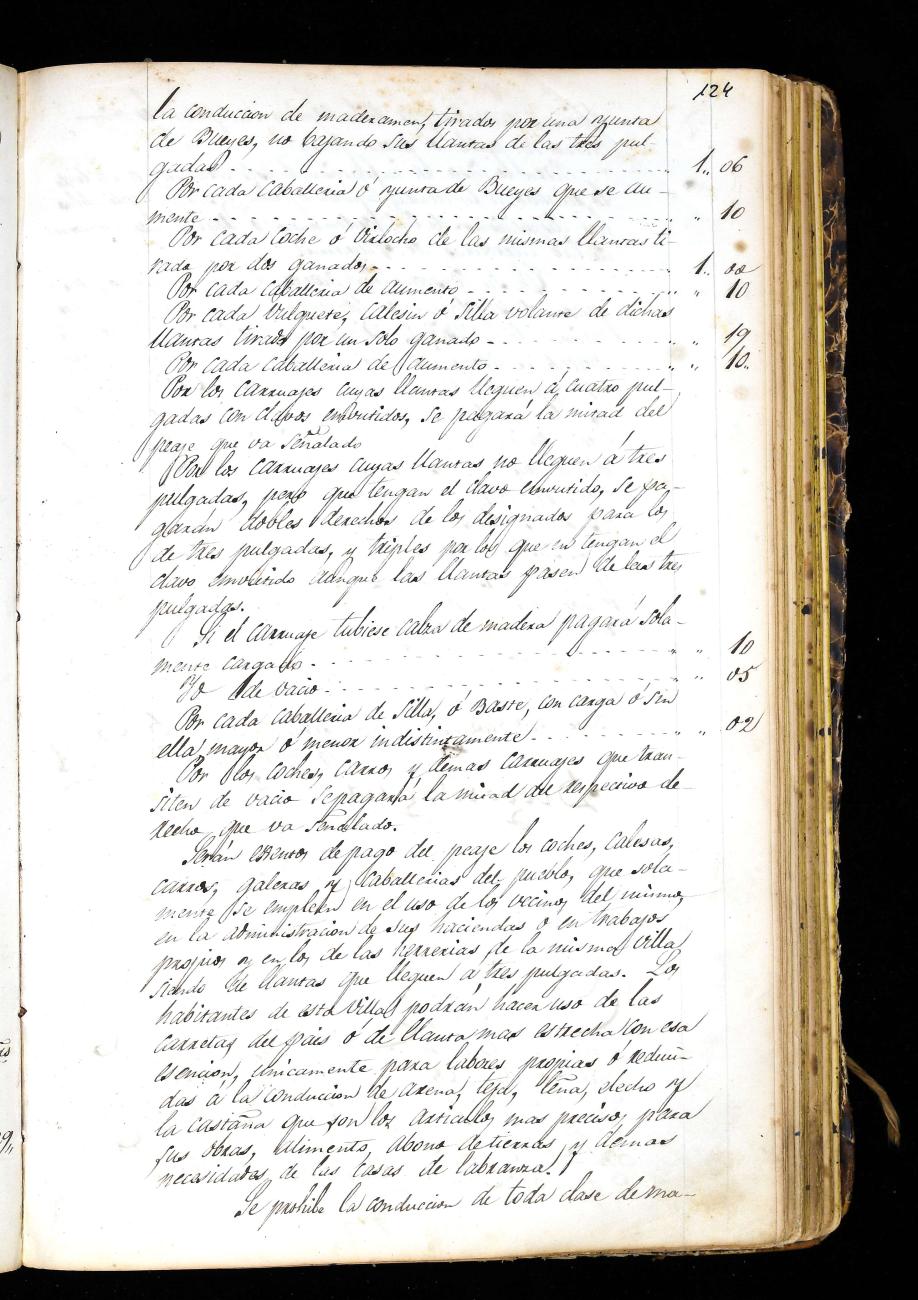 124
la conduccion de maderamen, tirados por una yunta
de Bueyes, no bajando sus llantas de las tres pul-
gadas - - - - - 1.. 06
Por cada caballeria ó yunta de Bueyes que se au-
mente - - - - - " " 10
Por cada coche ó virlocho de las mismas llantas ti-
rado por dos ganados - - - - - 1..
Por cada caballeria de aumento - - - - - " " 10
Por cada bulquete, calesin ó silla volante de dichas
llantas tirado por un solo ganado - - - - - " " 19
Por cada caballeria de aumento - - - - - " " 10..
Por los carruajes cuyas llantas lleguen á cuatro pul-
gadas con clavos embutidos, se pagará la mitad del
peaje que va señalado
Por los carruajes cuyas llantas no lleguen á tres
pulgadas, pero que tengan el clavo envutido, se pa-
garán dobles derechos de los designados para los
de tres pulgadas, y triples por los que no tengan el
clavo envutido aunque las llantas pasen de las tres
pulgadas.
Si el carruaje tubiese calza de madera pagará sola-
mente cargado - - - - - " " 10
Yd de vacio - - - - - " " 05
Por cada caballeria de silla, ó Baste, con carga ó sin
ella mayor ó menor indistintamente - - - - - " " 02
Por los coches, carros y demas carruajes que tran-
siten de vacio se pagará la mitad del respectivo de-
recho que va señalado.
Serán esentos de pago del peaje los coches, calesas,
carros, galeras y caballerias del pueblo, que sola-
mente se empleen en el uso de los vecinos del mismo,
en la administracion de sus haciendas ó en trabajos
propios y en los de las herrerias de la misma Villa
siendo de llantas que lleguen á tres pulgadas. Los
habitantes de esta Villa podrán hacer uso de las
carretas del pais ó de llanta mas estrecha con esa
esencion, únicamente para labores propias ó reduci-
das á la conduccion de arena, teja, leña, elecho y
la castaña que son los articulos mas precisos para
sus obras, alimento, abono de tierras y demas
necesidades de las casas de labranza.
Se prohibe la conduccion de toda clase de ma-